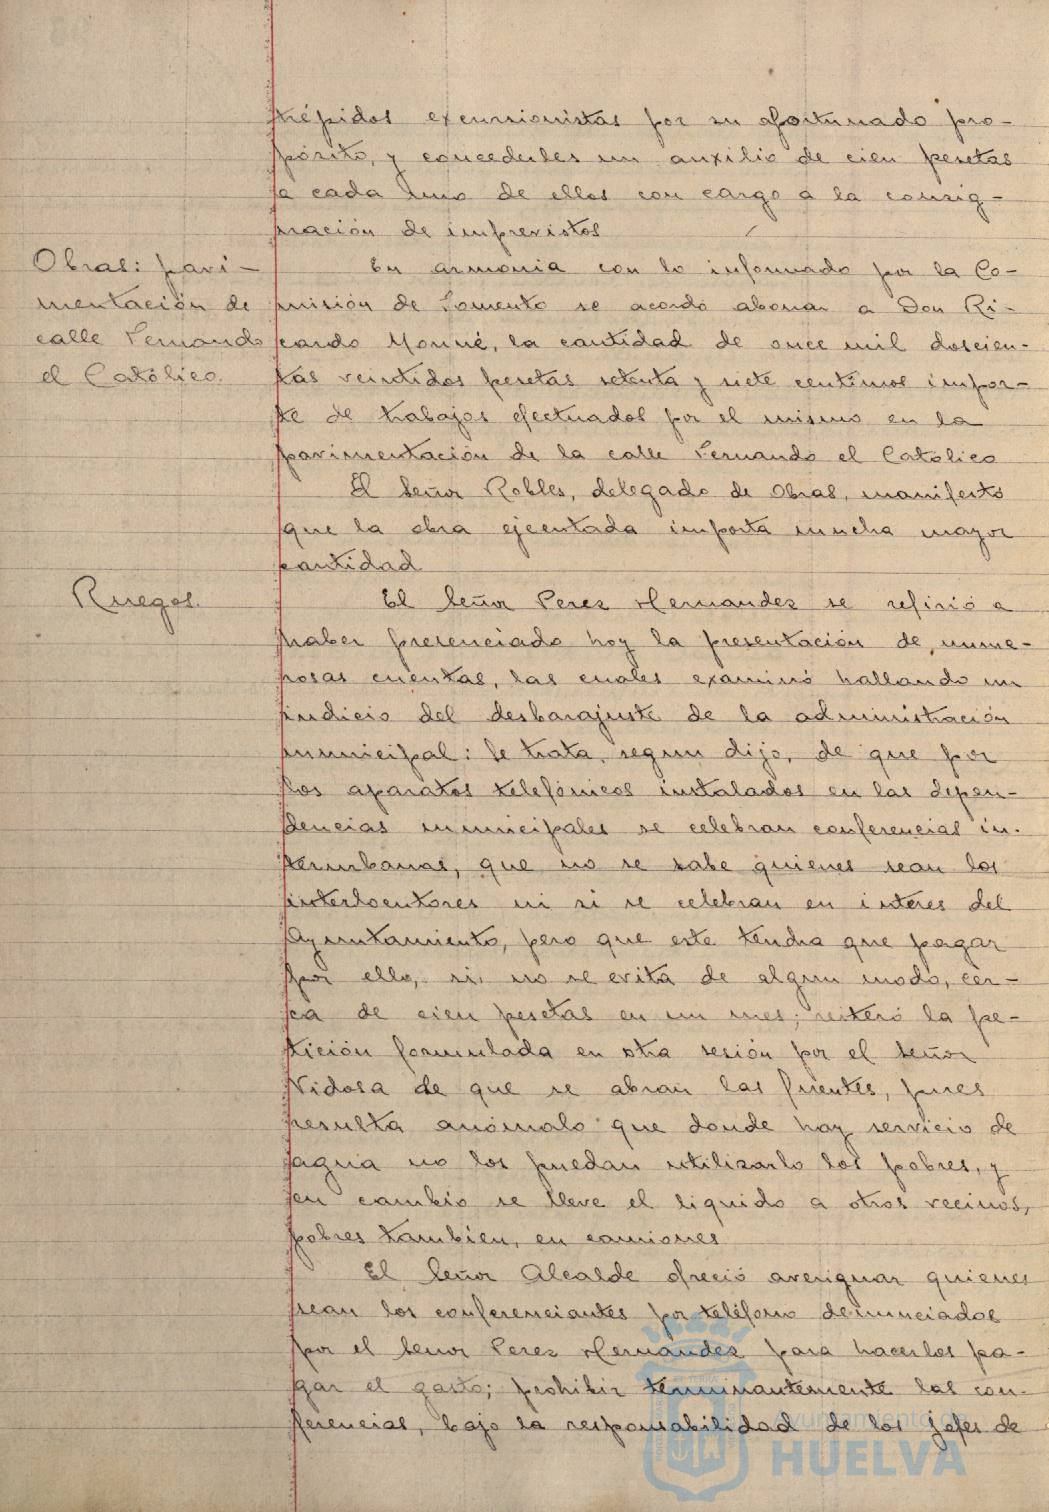 trépidos excursionistas por su afortunado pro-
pósito, y concederles un auxilio de cien pesetas
a cada uno de ellos con cargo a la consig-
nación de imprevistos
Obras: pavi-
mentación de
calle Fernando
el Católico.
En armonia con lo informado por la Co-
misión de Fomento se acordó abonar a Don Ri-
cardo Monné, la cantidad de once mil doscien-
tas veintidos pesetas setenta y siete centimos impor-
te de trabajos efectuados por el mismo en la
pavimentación de la calle Fernando el Católico
El Señor Robles, delegado de Obras, manifestó
que la obra ejecutada importa mucha mayor
cantidad
Ruegos.
El Señor Perez Hernandez se refirió a
haber presenciado hoy la presentación de nume-
rosas cuentas, las cuales examinó hallando un
indicio del desbarajuste de la administración
municipal: Se trata, segun dijo, de que por
los aparatos telefónicos instalados en las depen-
dencias municipales se celebran conferencias in-
terurbanas, que no se sabe quienes sean los
interlocutores ni si se celebran en interes del
Ayuntamiento, pero que este tendra que pagar
por ello, si no se evita de algun modo, cer-
ca de cien pesetas en un mes; reiteró la pe-
tición formulada en otra sesión por el señor
Vidosa de que se abran las fuentes, pues
resulta anómalo que donde hay servicio de
agua no los puedan utilizarlo los pobres, y
en cambio se lleve el liquido a otros vecinos,
pobres tambien, en camiones
El Señor Alcalde ofreció averiguar quienes
sean los conferenciantes por teléfono denunciados
por el Señor Perez Hernández para hacerlos pa-
gar el gasto; prohibir terminantemente las con-
ferencias, bajo la responsabilidad de los jefes de
Ayuntamiento de
HUELVA